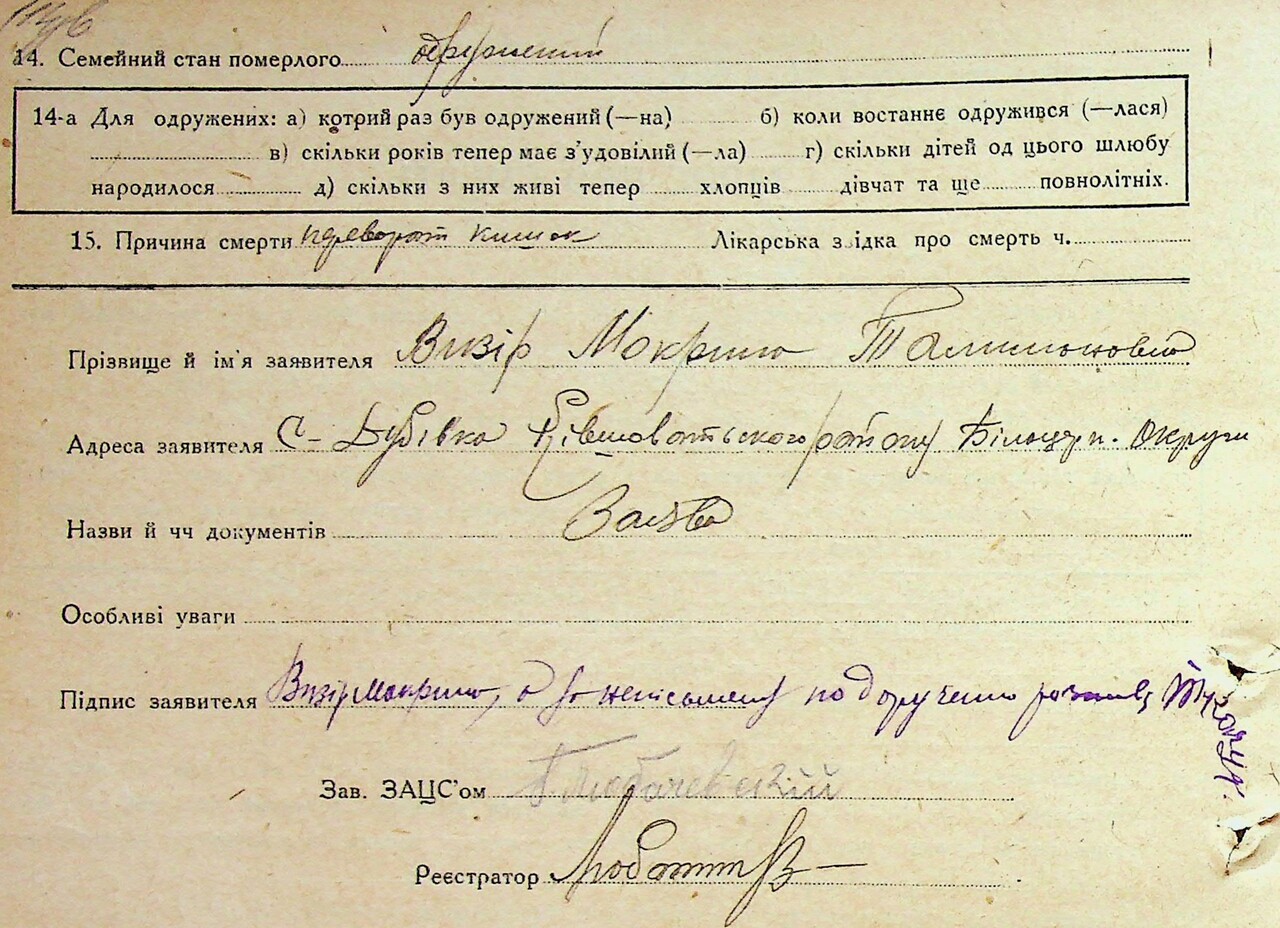 14. Семейний стан померлого одружений
14-а Для одружених: а) котрий раз був одружений (—на) б) коли востаннє одружився (—лася)
в) скільки років тепер має з'удовілий (—ла) г) скільки дітей од цього шлюбу
народилося д) скільки з них живі тепер хлопців дівчат та ще повнолітніх.
15. Причина смерти переворот кишок Лікарська з ідка про смерть ч.
Прізвище й ім'я заявителя Визір Мокрина
Адреса заявителя С- Дубівка району Білоцерк. Округи
Назви й чч документів Заява
Особливі уваги
Підпис заявителя Визір Мокрина, а за неписьмену по доручению
Зав. ЗАЦС'ом
Реєстратор